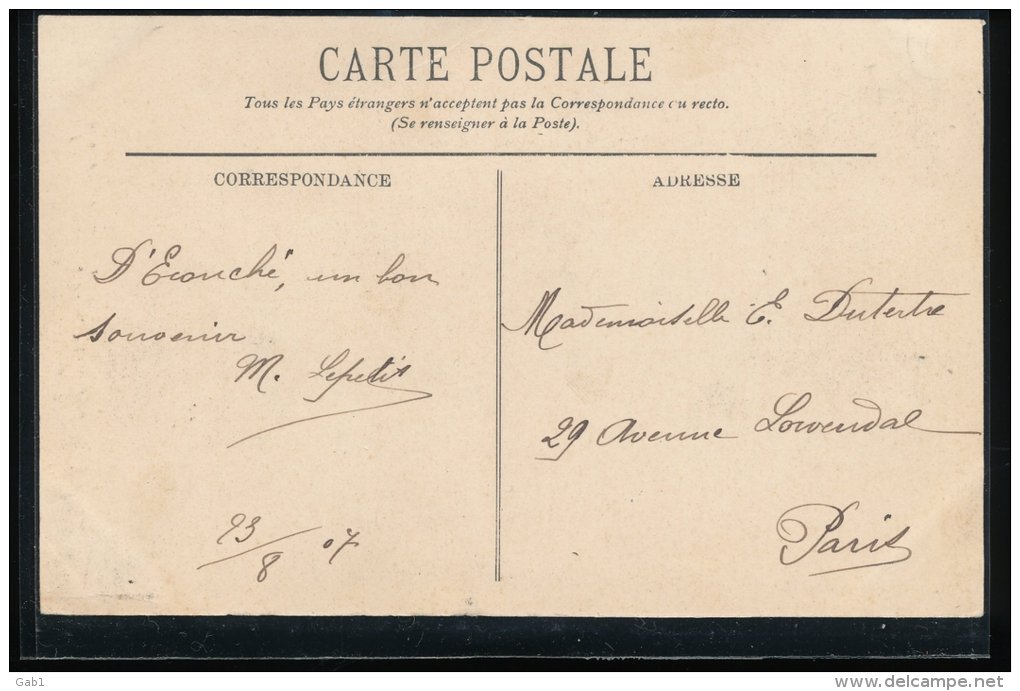 CARTE POSTALE
Tous les Pays étrangers n'acceptent pas la Correspondance au recto.
(Se renseigner à la Poste).
CORRESPONDANCE
D'Ecouché, un bon
souvenir
M. Lepetit
23/8 07
ADRESSE
Mademoiselle E. Dutertre
29 Avenue Lowendal
Paris
Gab1
delcampe.net